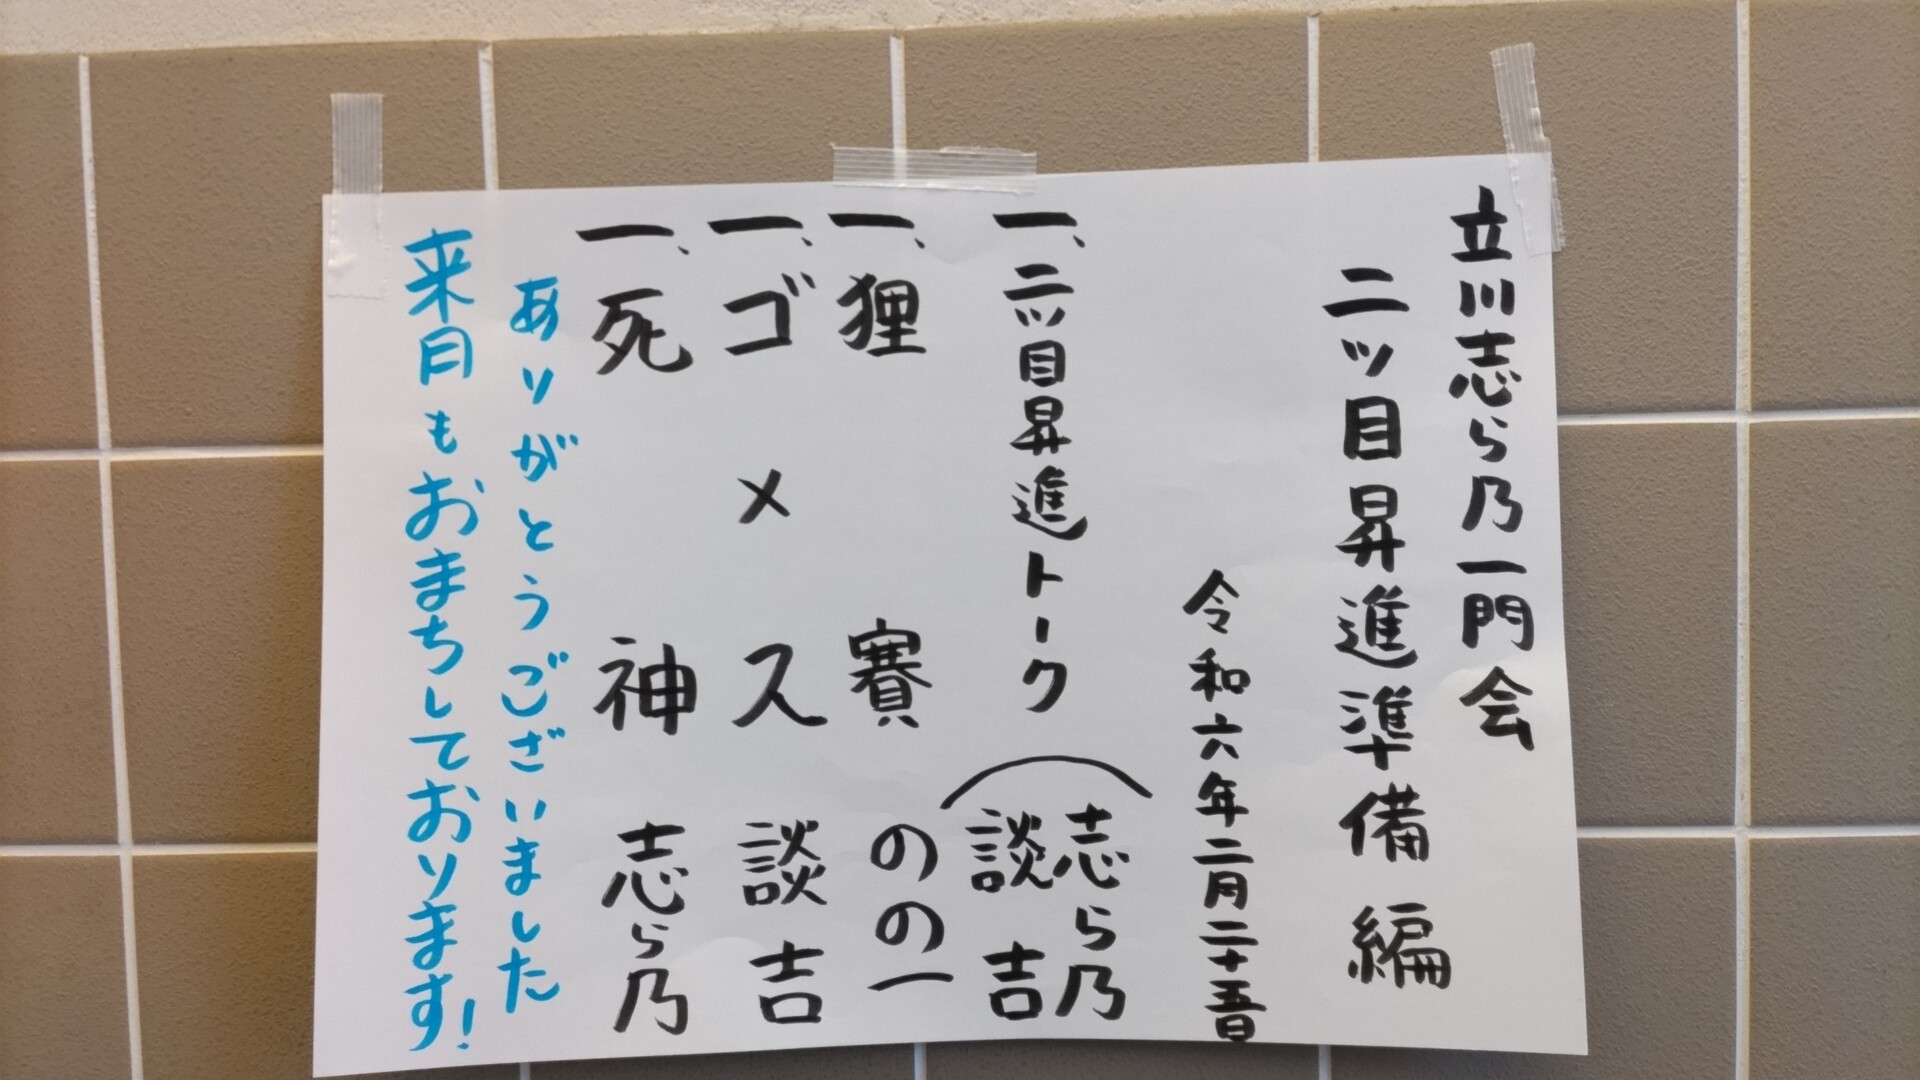 立川志ら乃一門会
二ッ目昇進準備編
令和六年二月二十五日
一、二ッ目昇進トーク（志ら乃 談吉
一、狸賽 のの一
一、ゴメス 談吉
一、死神 志ら乃
ありがとうございました
来月もおまちしております!